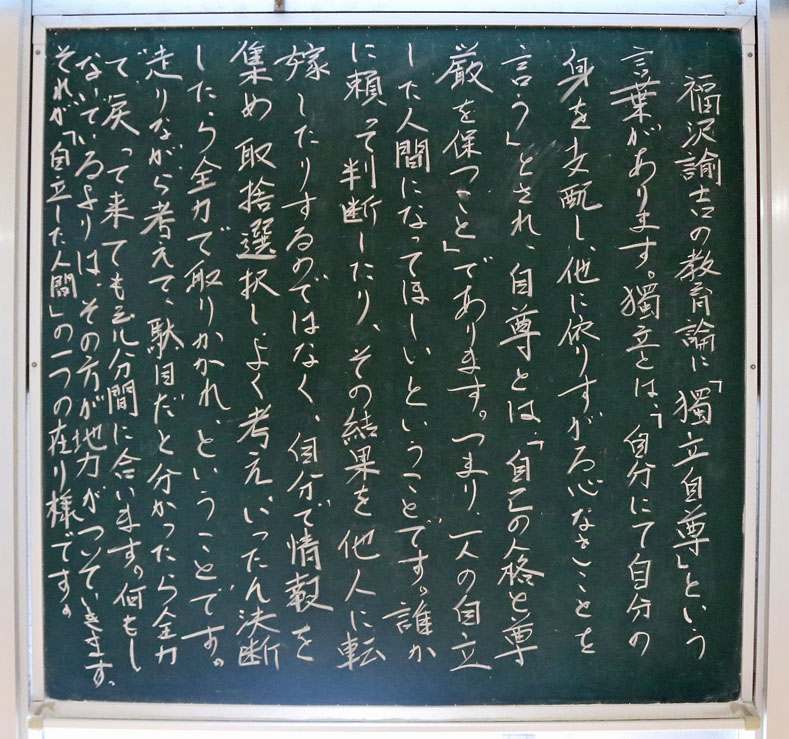 福沢諭吉の教育論に「獨立自尊」という
言葉があります。獨立とは、「自分にて自分の
身を支配し、他に依りすがる心なきことを
言う」とされ、自尊とは、「自己の人格と尊
厳を保つこと」であります。つまり、一人の自立
した人間になってほしいということです。誰か
に頼って判断したり、その結果を他人に転
嫁したりするのではなく、自分で情報を
集め取捨選択し、よく考え、いったん決断
したら全力で取りかかれ、ということです。
走りながら考えて、駄目だと分かったら全力
で戻って来ても充分間に合います。何もし
ないでいるよりは、その方が地力がついていきます。
それが「自立した人間」の一つの在り様です。